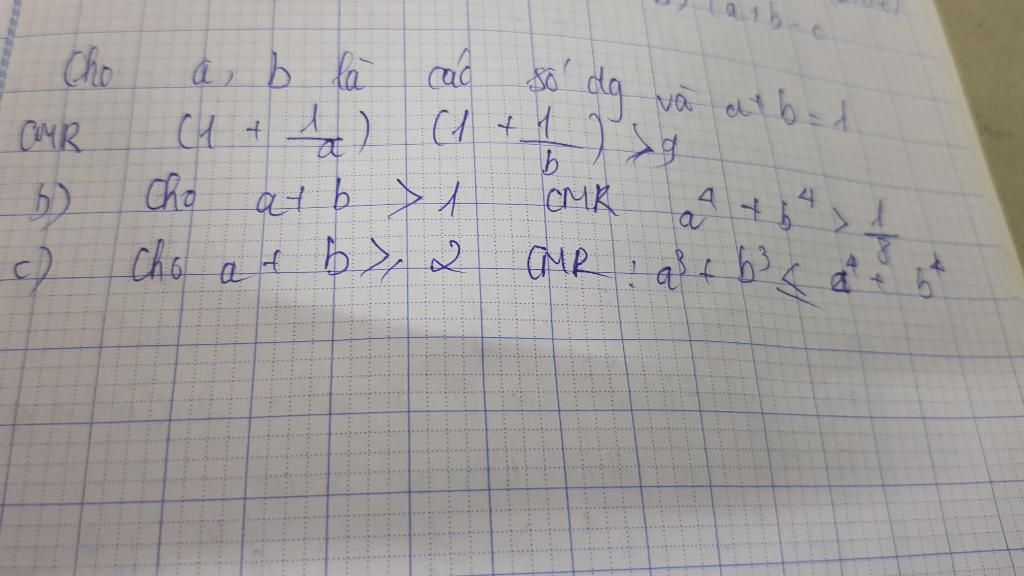 a+b-c
Cho a, b là các số dg và a+b=1
CMR (1 + 1/a) (1 + 1/b) ⩾ 9
b) Cho a+b > 1 CMR a⁴ + b⁴ > 1/8
c) Cho a+b ⩾ 2 CMR : a³ + b³ ≤ a⁴ + b⁴